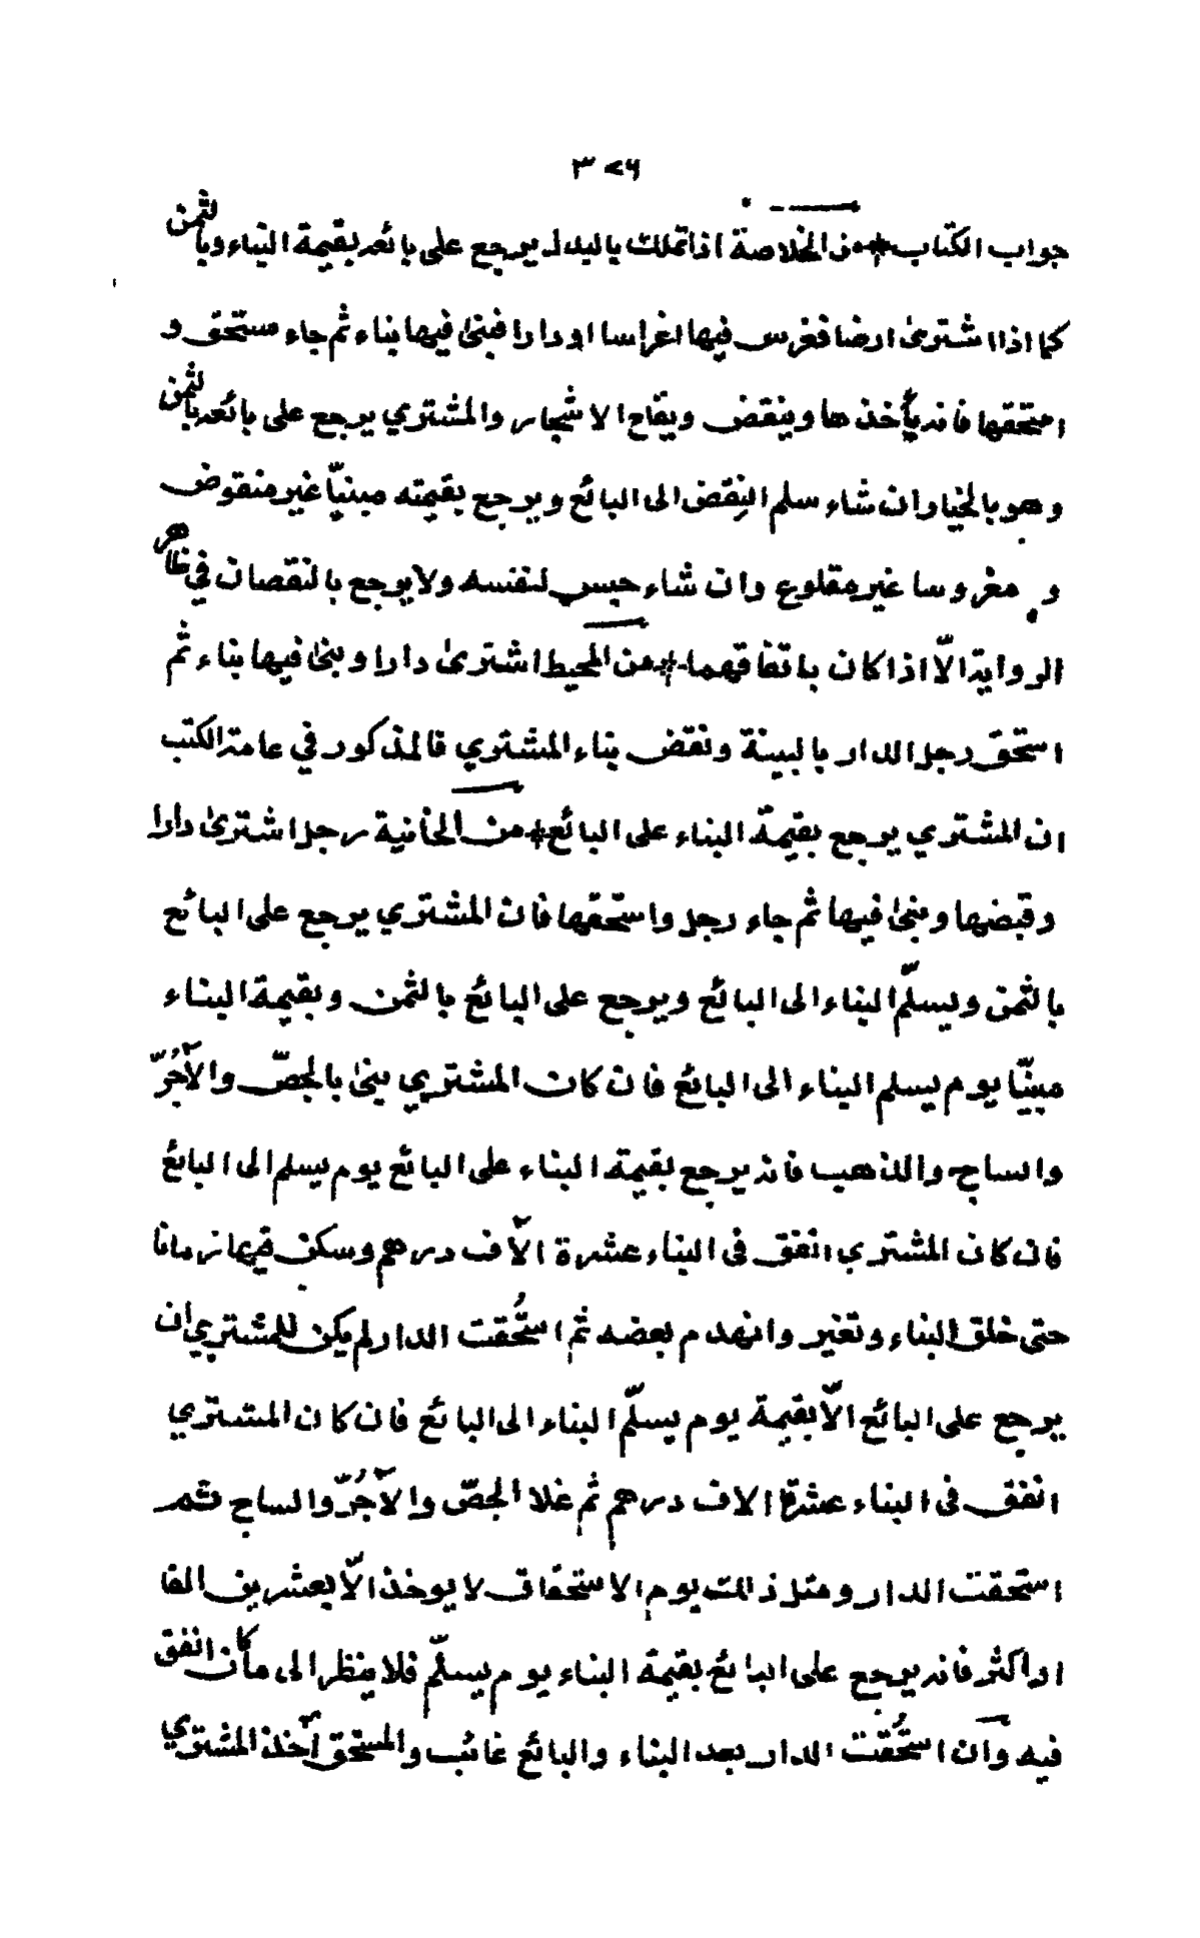 ٣٧٦
جواب الكتاب * من الخلاصة اذا تملك بالبدل يرجع على بائعه بقيمة البناء وبالثمن
كما اذا اشترى ارضا فغرس فيها اغراسا او دارا فبنى فيها بناء ثم جاء مستحق و
استحقها فانه يأخذها وينقض ويقلع الاشجار والمشتري يرجع على بائعه بالثمن
وهو بالخيار ان شاء سلم النِقض الى البائع ويرجع بقيمته مبنيّا غير منقوض
و مغروسا غير مقلوع وان شاء حبس لنفسه ولا يرجع بالنقصان في ظاهر
الرواية الّا اذا كان باتفاقهما * من المحيط اشترى دارا وبنى فيها بناء ثم
استحق رجل الدار بالبينة ونقض بناء المشتري فالمذكور في عامة الكتب
ان المشتري يرجع بقيمة البناء على البائع * من الخانية رجل اشترى دارا
وقبضها وبنى فيها ثم جاء رجل واستحقها فان المشتري يرجع على البائع
بالثمن ويسلّم البناء الى البائع ويرجع على البائع بالثمن وبقيمة البناء
مبنيّا يوم يسلم البناء الى البائع فان كان المشتري بنى بالجصّ والآجُرّ
والساج والذهب فانه يرجع بقيمة البناء على البائع يوم يسلم الى البائع
فان كان المشتري انفق فى البناء عشرة آلاف درهم وسكن فيها زمانا
حتى خلق البناء وتغير وانهدم بعضه ثم استُحقت الدار لم يكن للمشتري ان
يرجع على البائع الّا بقيمة يوم يسلّم البناء الى البائع فان كان المشتري
انفق فى البناء عشرة الاف درهم ثم غلا الجصّ والآجُرّ والساج ثم
استحقت الدار ومثل ذلك يوم الاستحقاق لا يوخذ الّا بعشرين الفا
او اكثر فانه يرجع على البائع بقيمة البناء يوم يسلّم فلا ينظر الى ما كان انفق
فيه وان استُحُقت الدار بعد البناء والبائع غائب والمستحق آخذ المشتري